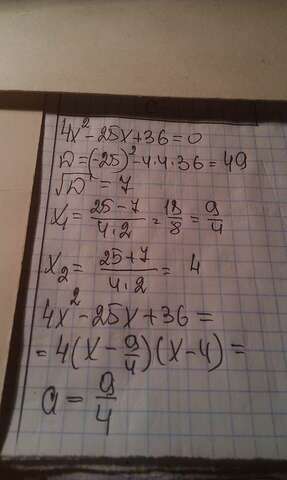 4x² - 25x + 36 = 0
D = (-25)² - 4·4·36 = 49
√D = 7
x₁ = (25 - 7)/(4·2) = 18/8 = 9/4
x₂ = (25 + 7)/(4·2) = 4
4x² - 25x + 36 =
= 4(x - 9/4)(x - 4) =
a = 9/4